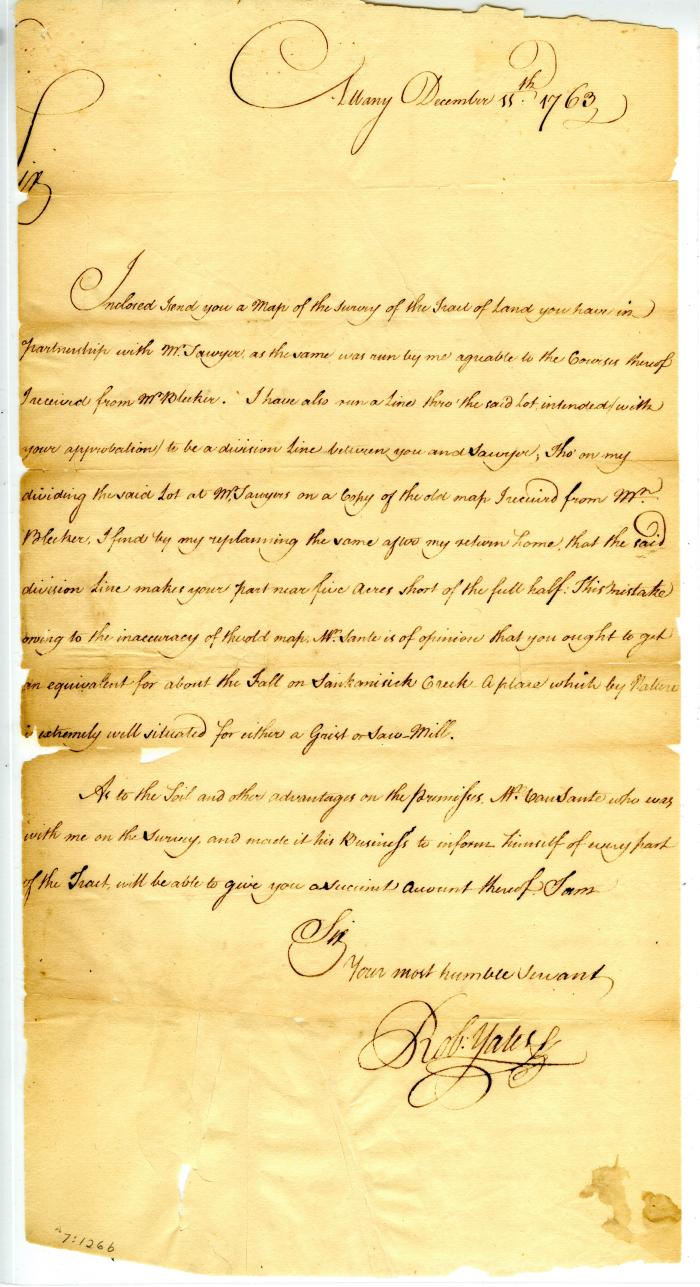 Albany December 11th 1763
Sir
Inclosed I send you a Map of the Survey of the Tract of Land you have in
partnership with Mr. Sawyer, as the same was run by me agreable to the Courses thereof
I receivd from Mr Bleeker. I have also run a Line thro' the said Lot, intended (with
your approbation) to be a division Line between you and Sawyer, Tho' on my
dividing the said Lot at Mr. Sawyers on a Copy of the old map I receivd from Mr.
Bleeker, I find by my replanning the same after my return home, that the said
division Line makes your part near five Acres short of the full half: This mistake
owing to the inaccuracy of the old map. Mr. Sante is of opinion that you ought to get
an equivalent for about the Fall on Sankanisick Creek A place which by Nature
is extremely well situated for either a Grist or Saw-Mill.
As to the Soil and other advantages on the premises, Mr. Van Sante who was
with me on the Survey, and made it his Business to inform himself of every part
of the Tract, will be able to give you a succinct Account thereof. I am
Sir
Your most humble Servant
Rob. Yates
7:1266